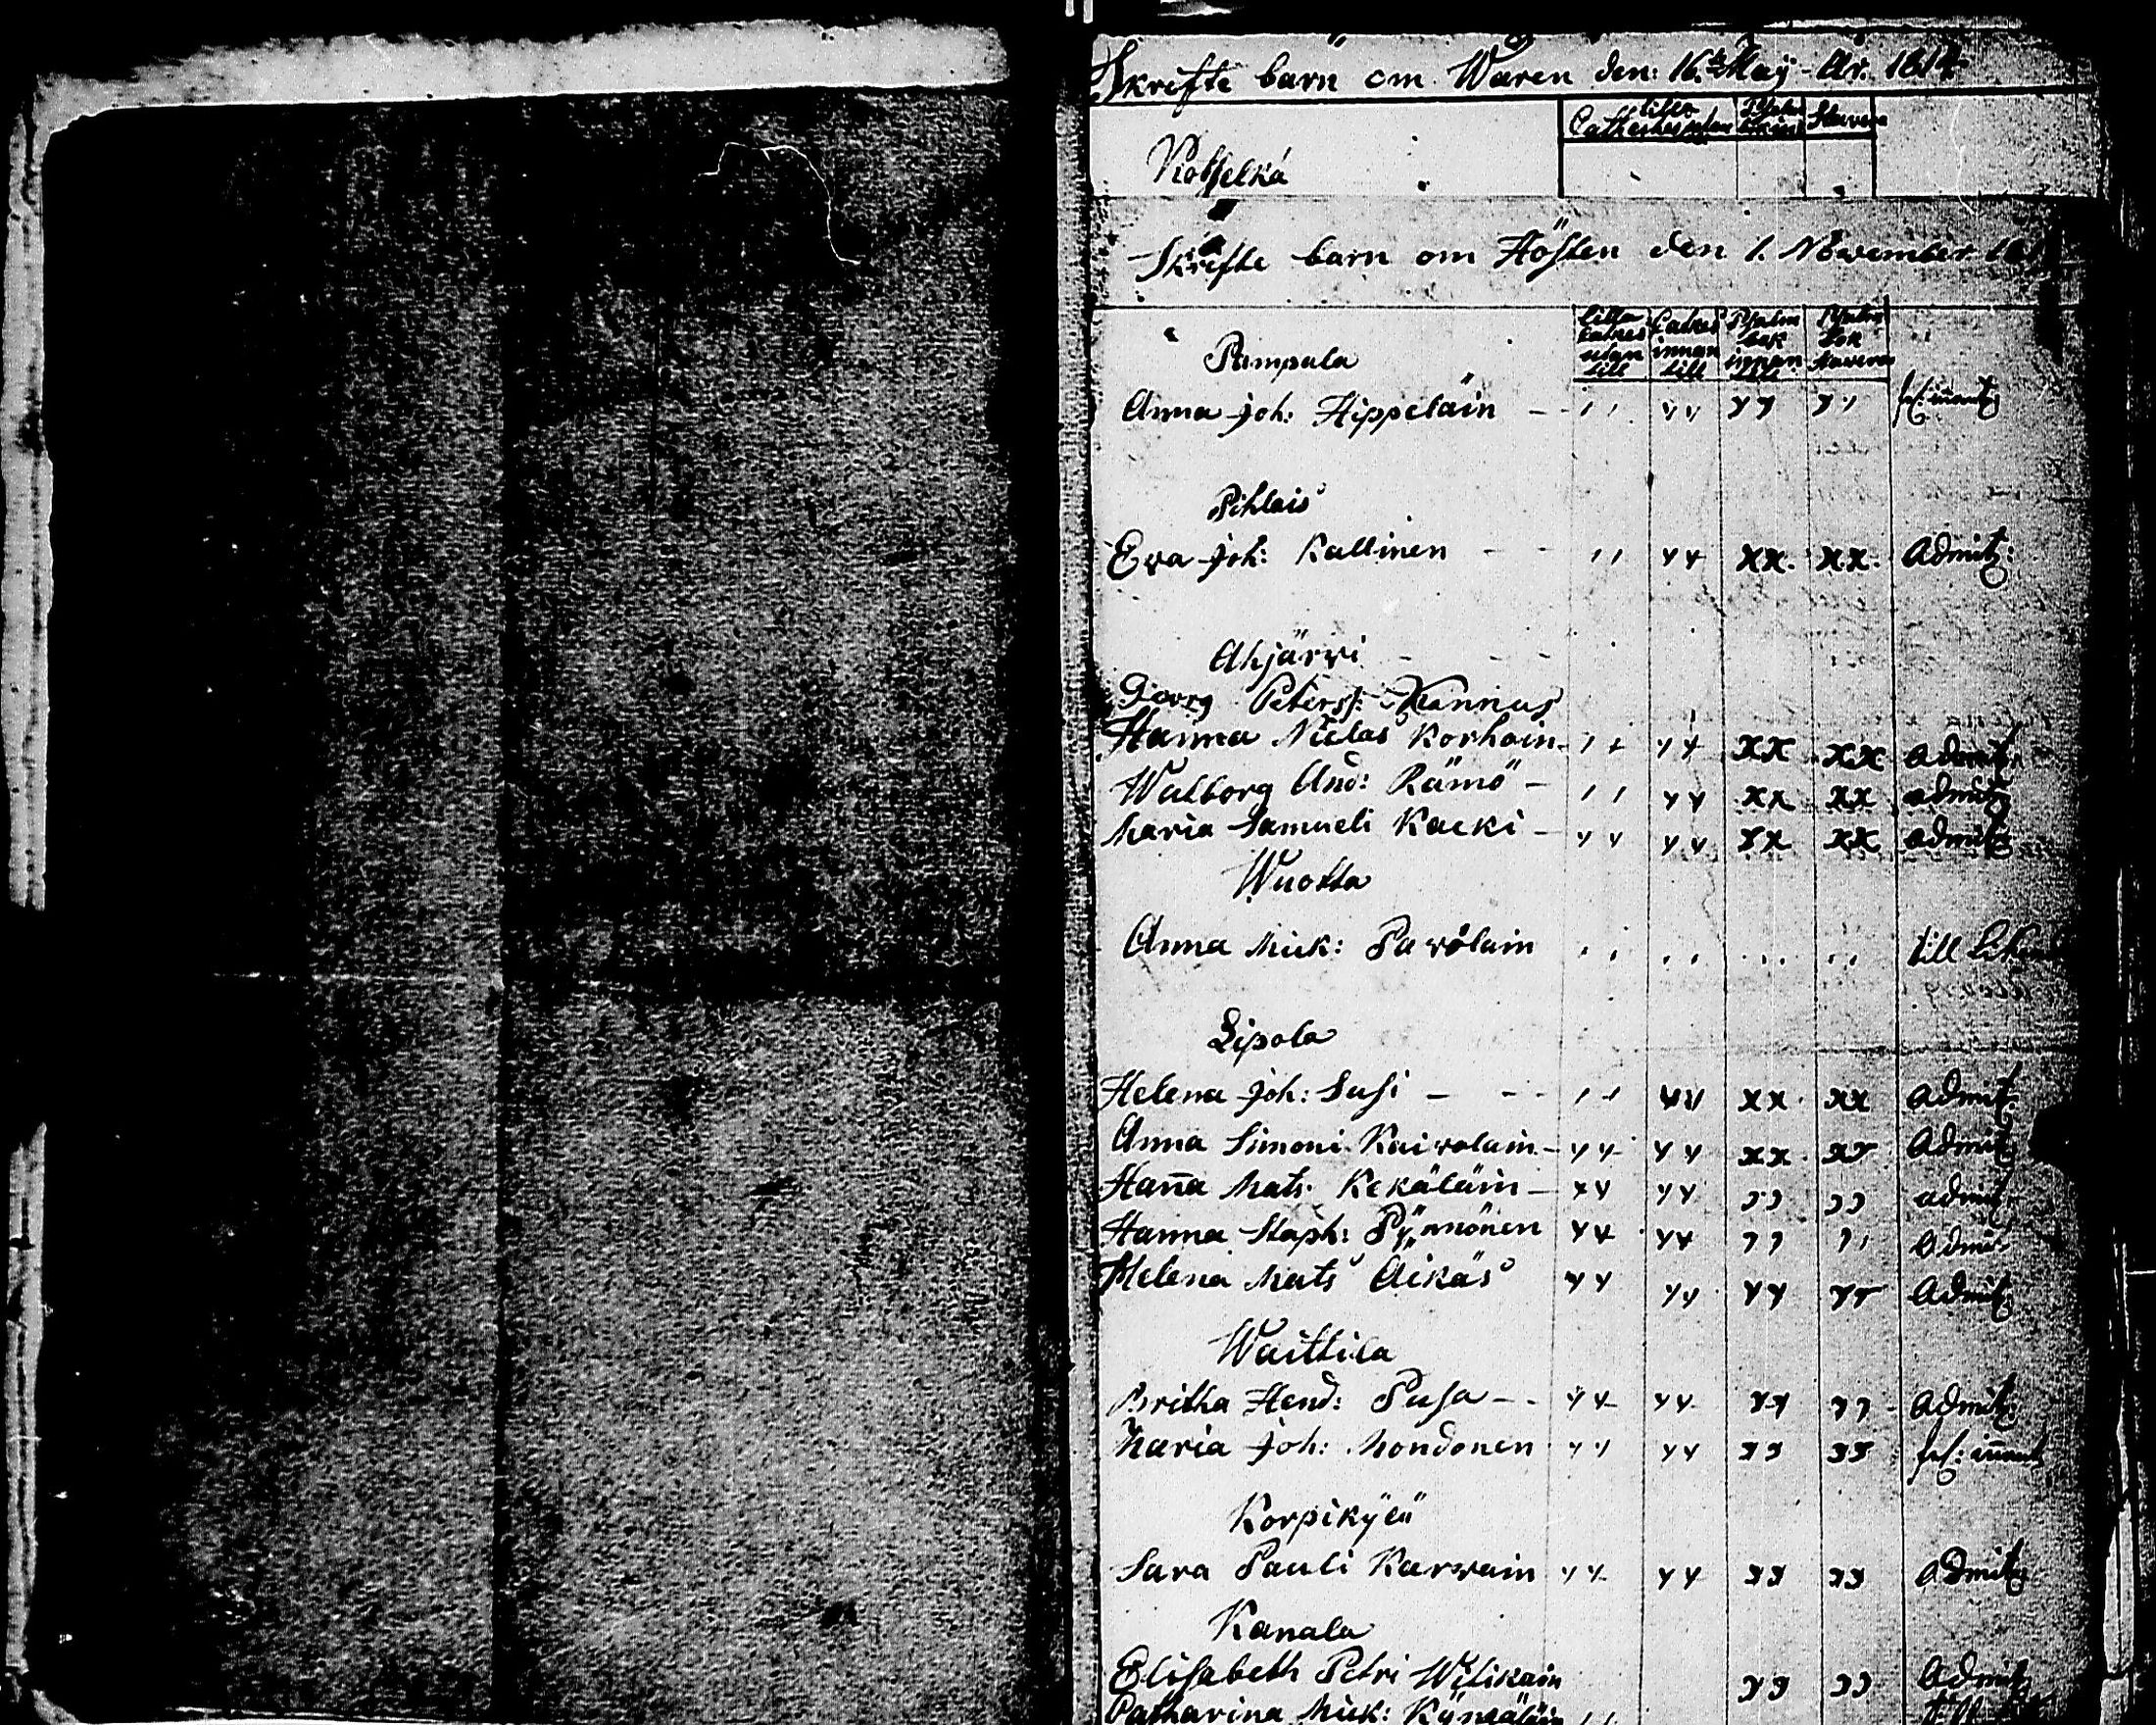 Skrifte barn om Waren den 16de May - År. 1814
lilla Catheches utan Psalm bok in Stavera
Kosselkä
Skrifte barn om Hösten den 1. November
lilla katkes utan till Catkes innan till Psalm bok innan till Psalm bok stavera
Pampala
Anna Joh: Hippeläin - - ,, yy yy yy
Pihlais
Eva Joh: Kallinen - - ,, yy xx. xx. Admitz:
Ahjärvi
Georg Peterss: Hannus
Hanna Niclas Korhoin - ,, yy xx xx Admit:
Walborg And: Rämö - ,, yy xx xx admitz
Maria Samueli Kaeki - yy yy xx xx admitz
Wuotta
Anna Mick: Pavolain ,, ,, ,, ,, till
Lipola
Helena Joh: Susi - - - ,, yy xx xx Admit:
Anna Simoni Kaivolain - yy yy xx xx Admit
Hanna Mats Kekäläin - xy yy yy yy admit
Hanna Staph: Pÿnnönen yy yy yy ,, Admit
Helena Mats Äikäs yy yy yy yy Admit
Waittila
Britha Hend: Pusa - - yy yy yy yy - Admitz:
Maria Joh: Mondonen yy yy yy yy
Korpikylä
Sara Pauli Karvain yy yy yy yy Admitz
Kanala
Elisabeth Petri Wilikain yy yy Admitz
Catharina Mick: